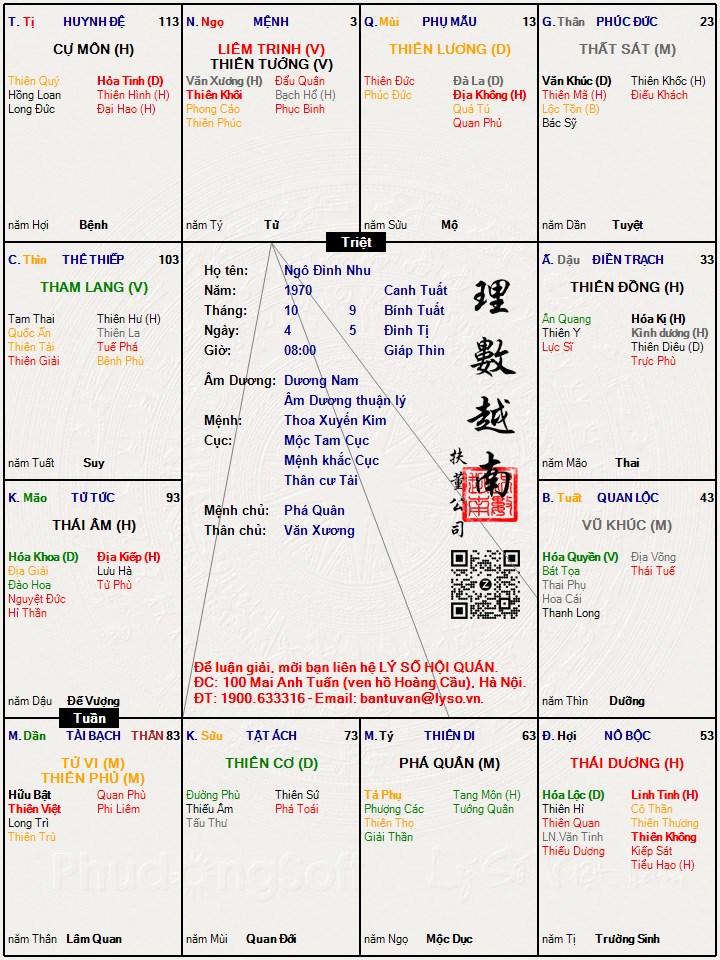 T. Tị HUYNH ĐỆ 113
CỰ MÔN (H)
Thiên Quý Hỏa Tinh (D)
Hồng Loan Thiên Hình (H)
Long Đức Đại Hao (H)
năm Hợi Bệnh
N. Ngọ MỆNH 3
LIÊM TRINH (V)
THIÊN TƯỚNG (V)
Văn Xương (H) Đẩu Quân
Thiên Khôi Bạch Hổ (H)
Phong Cáo Phục Binh
Thiên Phúc
năm Tý Tử
Q. Mùi PHỤ MẪU 13
THIÊN LƯƠNG (D)
Thiên Đức Đà La (D)
Phúc Đức Địa Không (H)
Quả Tú
Quan Phủ
năm Sửu Mộ
G. Thân PHÚC ĐỨC 23
THẤT SÁT (M)
Văn Khúc (D) Thiên Khốc (H)
Thiên Mã (H) Điếu Khách
Lộc Tồn (B)
Bác Sỹ
năm Dần Tuyệt
Triệt
C. Thìn THÊ THIẾP 103
THAM LANG (V)
Tam Thai Thiên Hư (H)
Quốc Ấn Thiên La
Thiên Tài Tuế Phá
Thiên Giải Bệnh Phù
năm Tuất Suy
Họ tên: Ngô Đình Nhu
Năm: 1970 Canh Tuất
Tháng: 10 9 Bính Tuất
Ngày: 4 5 Đinh Tị
Giờ: 08:00 Giáp Thìn
Âm Dương: Dương Nam
Âm Dương thuận lý
Mệnh: Thoa Xuyến Kim
Cục: Mộc Tam Cục
Mệnh khắc Cục
Thân cư Tài
Mệnh chủ: Phá Quân
Thân chủ: Văn Xương
理數越南
扶董公司
Để luận giải, mời bạn liên hệ LÝ SỐ HỘI QUÁN.
ĐC: 100 Mai Anh Tuấn (ven hồ Hoàng Cầu), Hà Nội.
ĐT: 1900.633316 - Email: bantuvan@lyso.vn.
Ấ. Dậu ĐIỀN TRẠCH 33
THIÊN ĐỒNG (H)
Ân Quang Hóa Kị (H)
Thiên Y Kình dương (H)
Lực Sĩ Thiên Diêu (D)
Trực Phù
năm Mão Thai
K. Mão TỬ TỨC 93
THÁI ÂM (H)
Hóa Khoa (D) Địa Kiếp (H)
Địa Giải Lưu Hà
Đào Hoa Tử Phù
Nguyệt Đức
Hỉ Thần
năm Dậu Đế Vượng
B. Tuất QUAN LỘC 43
VŨ KHÚC (M)
Hóa Quyền (V) Địa Võng
Bát Tọa Thái Tuế
Thai Phụ
Hoa Cái
Thanh Long
năm Thìn Dưỡng
Tuần
M. Dần TÀI BẠCH THÂN 83
TỬ VI (M)
THIÊN PHỦ (M)
Hữu Bật Quan Phù
Thiên Việt Phi Liêm
Long Trì
Thiên Trù
năm Thân Lâm Quan
K. Sửu TẬT ÁCH 73
THIÊN CƠ (D)
Đường Phù Thiên Sứ
Thiếu Âm Phá Toái
Tấu Thư
năm Mùi Quan Đới
M. Tý THIÊN DI 63
PHÁ QUÂN (M)
Tả Phụ Tang Môn (H)
Phượng Các Tướng Quân
Thiên Thọ
Giải Thần
năm Ngọ Mộc Dục
Đ. Hợi NÔ BỘC 53
THÁI DƯƠNG (H)
Hóa Lộc (D) Linh Tinh (H)
Thiên Hỉ Cô Thần
Thiên Quan Thiên Thương
LN.Văn Tinh Thiên Không
Thiếu Dương Kiếp Sát
Tiểu Hao (H)
năm Tị Trường Sinh